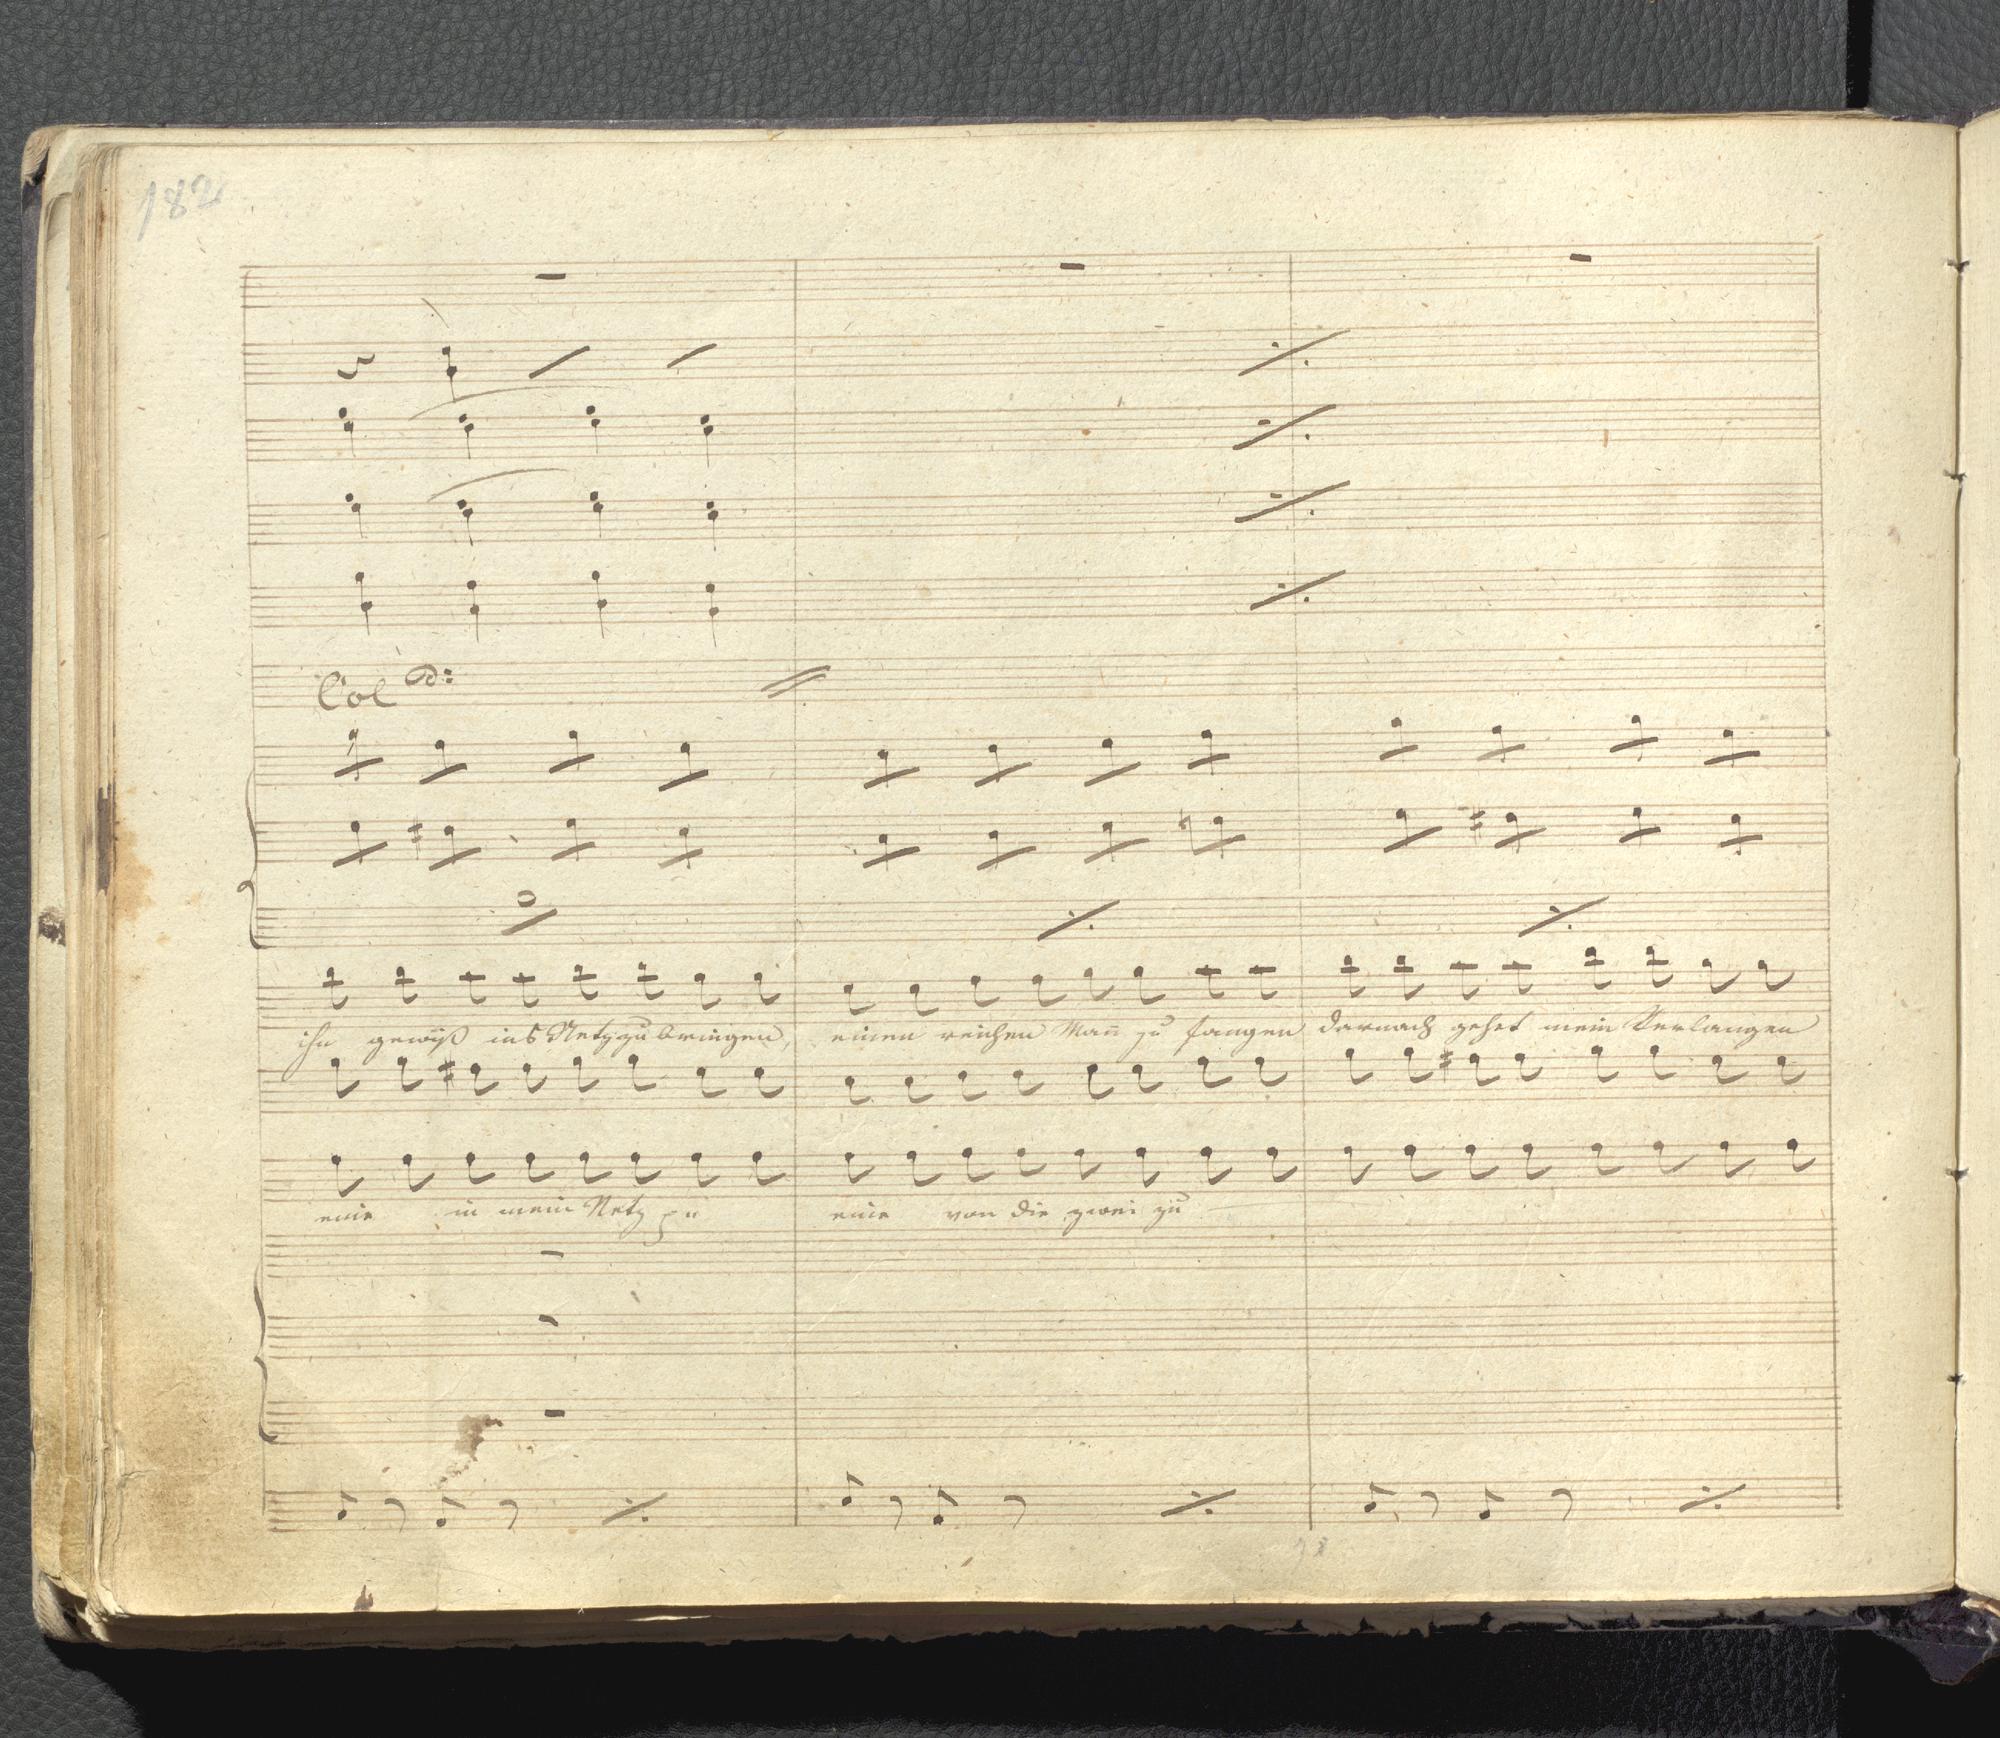 182
Col
ihn gewiß ins Netz zu bringen, einen reichen Man̄ zu fangen darnach gehet mein Verlangen
eine in mein Netz zu eine von die zwei zu